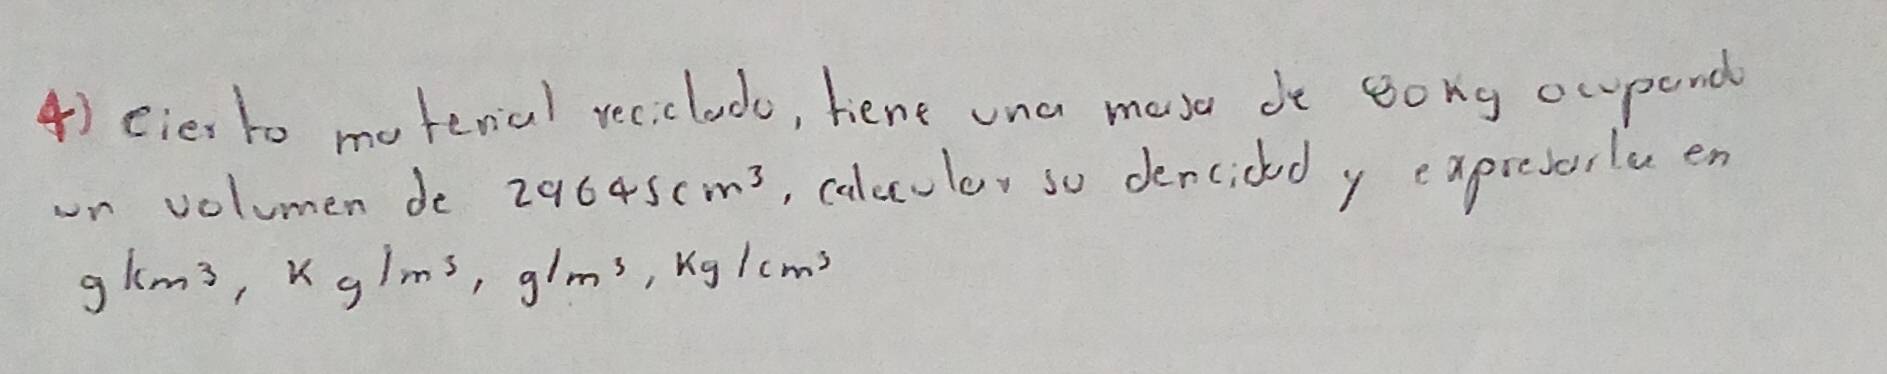 4) Cierto material reciclado, tiene una masa de 80Kg ocupand
un volumen de 29645cm³, calcular su dencidad y expresarla en
g/cm³, Kg/m³, g/m³, Kg/cm³